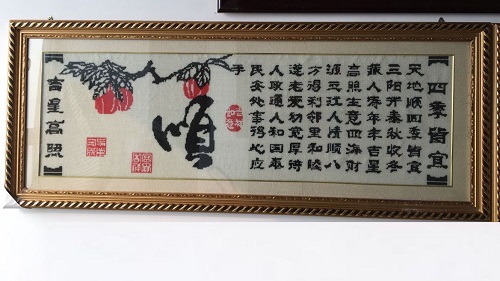 四季皆宜
天地順四季皆宜
三阳开泰秋收冬
藏人寿年丰吉星
高照生意四海财
源三江人情順八
方得利邻里和睦
尊老爱幼宽厚待
人政通人和国泰
民安处事得心应
手
順
吉星高照